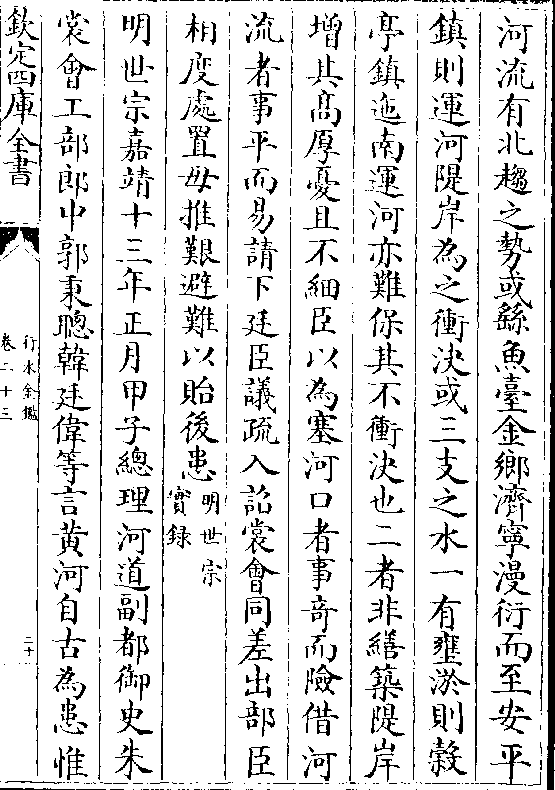 河流有北趨之勢或繇魚臺金鄉濟寧漫衍而至安平
鎮則運河隄岸為之衝決或三支之水一有壅淤則榖
亭鎮迤南運河亦難保其不衝決也二者非繕築隄岸
增其髙厚憂且不細臣以為塞河口者事竒而險借河
流者事平而易請下廷臣議疏入詔裳會同差出部臣
相度處置毋推艱避難以貽後患明世宗
實録
明世宗嘉靖十三年正月甲子總理河道副都御史朱
裳會工部郎中郭秉聰韓廷偉等言黄河自古為患惟
欽定四庫全書
行水金鑑
卷二十三
二十